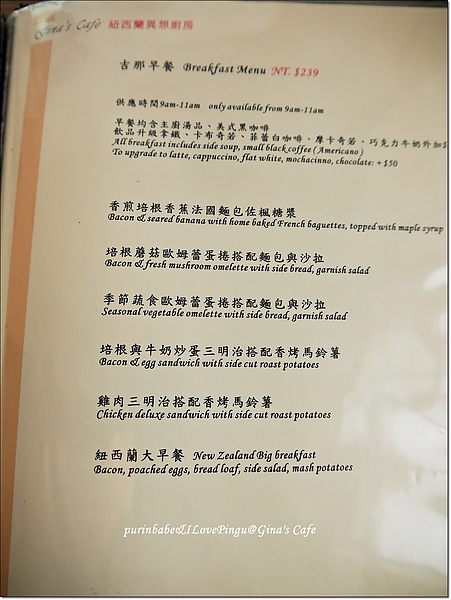 Gina's Café 紐西蘭異想廚房
吉那早餐 Breakfast Menu NT. $239
供應時間9am-11am only available from 9am-11am
早餐均含主廚湯品、美式黑咖啡
飲品升級拿鐵、卡布奇若、菲蕾白咖啡、摩卡奇若、巧克力牛奶外加
All breakfast includes side soup, small black coffee (Americano)
To upgrade to latte, cappuccino, flat white, mochacinno, chocolate: + $50
香煎培根香蕉法國麵包佐楓糖漿
Bacon & seared banana with home baked French baguettes, topped with maple syrup
培根蘑菇歐姆蕾蛋捲搭配麵包與沙拉
Bacon & fresh mushroom omelette with side bread, garnish salad
季節蔬食歐姆蕾蛋捲搭配麵包與沙拉
Seasonal vegetable omelette with side bread, garnish salad
培根與牛奶炒蛋三明治搭配香烤馬鈴薯
Bacon & egg sandwich with side cut roast potatoes
雞肉三明治搭配香烤馬鈴薯
Chicken deluxe sandwich with side cut roast potatoes
紐西蘭大早餐 New Zealand Big breakfast
Bacon, poached eggs, bread loaf, side salad, mash potatoes
purinbabe&ILovePingu@Gina's Cafe